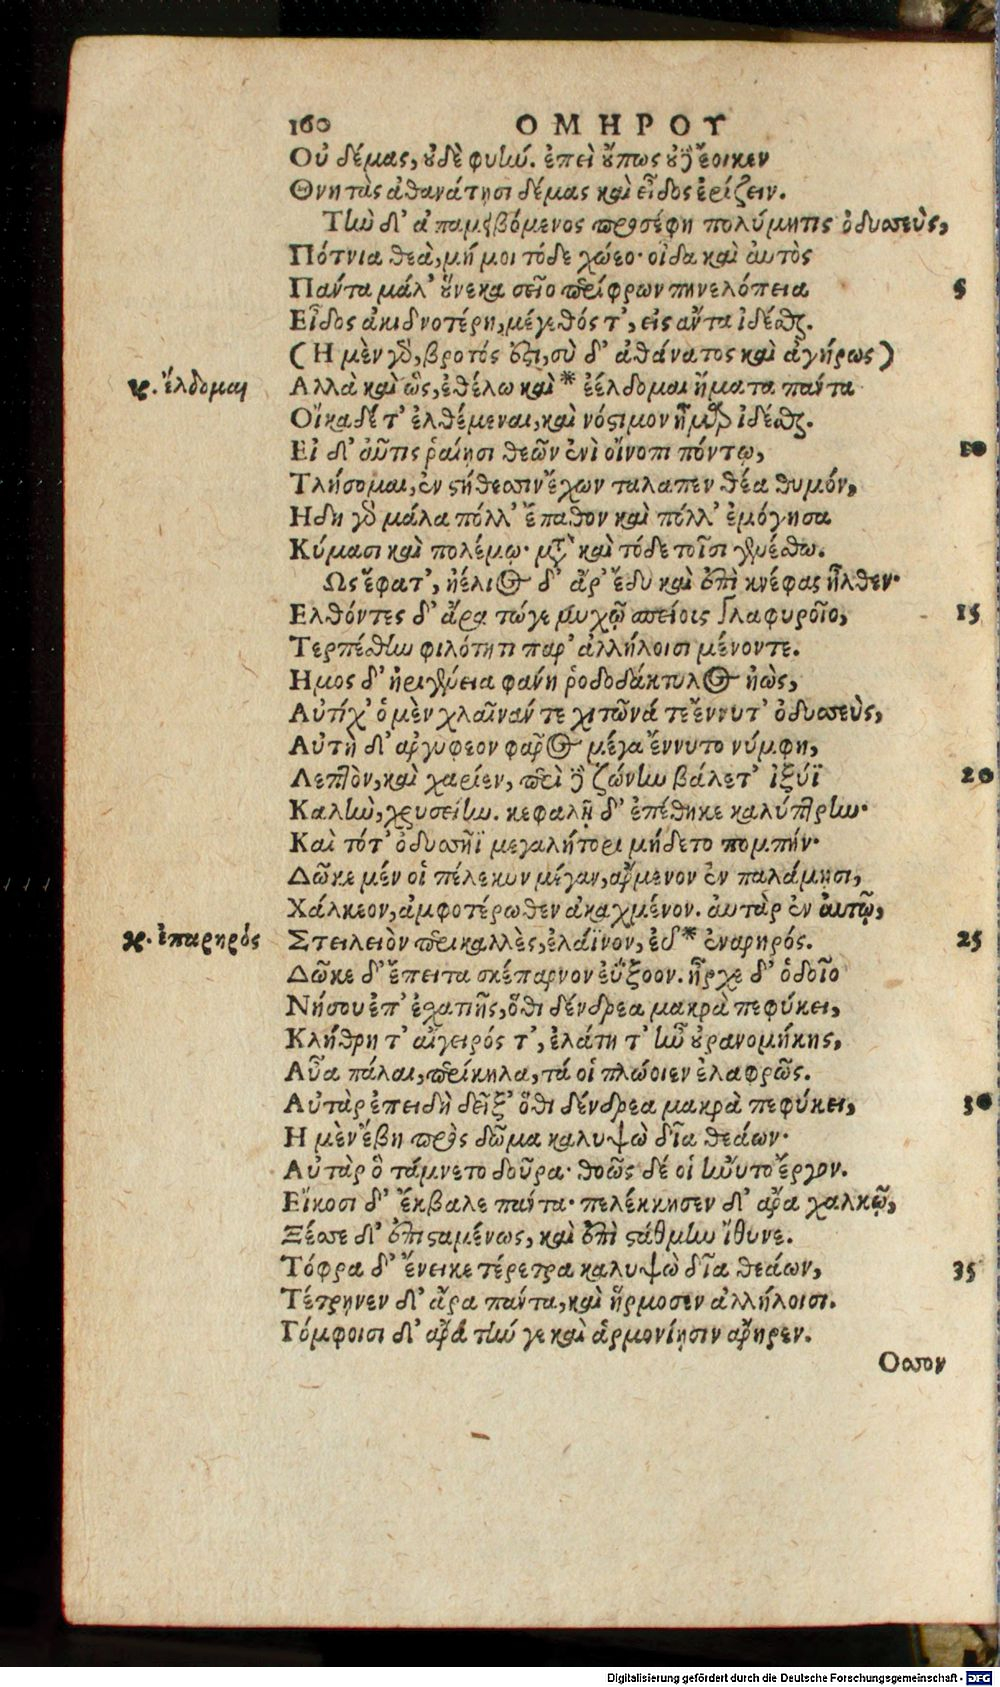 160 ΟΜΗΡΟΥ
Οὐ δέμας, οὐδὲ φυήν. ἐπεὶ οὔπως οὐδὲ ἔοικεν
Θνητὰς ἀθανάτῃσι δέμας καὶ εἶδος ἐρίζειν.
Τὴν δ' ἀπαμειβόμενος προσέφη πολύμητις ὀδυσσεὺς,
Πότνια θεὰ, μή μοι τόδε χώεο· οἶδα καὶ ἀυτὸς
Πάντα μάλ' οὕνεκα σεῖο περίφρων πηνελόπεια 5
Εἶδος ἀκιδνοτέρη, μέγεθός τ', εἰς ἄντα ἰδέσθαι.
(Η μὲν γὰρ, βροτός ἐστι, σὺ δ' ἀθάνατος καὶ ἀγήρως)
γρ. ἔλδομαι Αλλὰ καὶ ὣς, ἐθέλω καὶ* ἐέλδομαι ἤματα πάντα
Οἴκαδέ τ' ἐλθέμεναι, καὶ νόστιμον ἦμαρ ἰδέσθαι.
Εἰ δ' αὖτις ῥαίῃσι θεῶν ἐνὶ οἴνοπι πόντῳ, 10
Τλήσομαι, ἐν στήθεσσιν ἔχων ταλαπενθέα θυμόν,
Ηδη γὰρ μάλα πόλλ' ἔπαθον καὶ πόλλ' ἐμόγησα
Κύμασι καὶ πολέμῳ· μετὰ καὶ τόδε τοῖσι γενέσθω.
Ως ἔφατ', ἠέλιος δ' ἄρ' ἔδυ καὶ ἐπὶ κνέφας ἦλθεν·
Ελθόντες δ' ἄρα τώγε μυχῷ σπείοις γλαφυροῖο, 15
Τερπέσθην φιλότητι παρ' ἀλλήλοισι μένοντε.
Ημος δ' ἠριγένεια φάνη ῥοδοδάκτυλος ἠὼς,
Αὐτίχ' ὁ μὲν χλαῖνάν τε χιτῶνά τε ἕννυτ' ὀδυσσεὺς,
Αὐτὴ δ' ἀργύφεον φᾶρος μέγα ἕννυτο νύμφη,
Λεπτὸν, καὶ χαρίεν, περὶ δὲ ζώνην βάλετ' ἰξύϊ 20
Καλὴν, χρυσείην. κεφαλῇ δ' ἐπέθηκε καλύπτρην·
Καὶ τότ' ὀδυσσῆϊ μεγαλήτορι μήδετο πομπήν·
Δῶκε μέν οἱ πέλεκυν μέγαν, ἄρμενον ἐν παλάμῃσι,
Χάλκεον, ἀμφοτέρωθεν ἀκαχμένον. ἀυτὰρ ἐν ἀυτῷ,
γρ. ἐπαρηρός Στειλειὸν περικαλλὲς, ἐλάϊνον, ἐὺ* ἐναρηρός. 25
Δῶκε δ' ἔπειτα σκέπαρνον ἐΰξοον. ἦρχε δ' ὁδοῖο
Νήσου ἐπ' ἐσχατιῆς, ὅθι δένδρεα μακρὰ πεφύκει,
Κλήθρη τ' αἴγειρός τ', ἐλάτη τ' ἦν οὐρανομήκης,
Αὖα πάλαι, περίκηλα, τά οἱ πλώοιεν ἐλαφρῶς.
Αὐτὰρ ἐπειδὴ δεῖξ' ὅθι δένδρεα μακρὰ πεφύκει, 30
Η μὲν ἔβη πρὸς δῶμα καλυψὼ δῖα θεάων·
Αὐτὰρ ὃ τάμνετο δοῦρα· θοῶς δέ οἱ ἤνυτο ἔργον.
Εἴκοσι δ' ἔκβαλε πάντα· πελέκκησεν δ' ἄρα χαλκῷ,
Ξέσσε δ' ἐπισταμένως, καὶ ἐπὶ στάθμην ἴθυνε.
Τόφρα δ' ἔνεικε τέρετρα καλυψὼ δῖα θεάων, 35
Τέτρηνεν δ' ἄρα πάντα, καὶ ἥρμοσεν ἀλλήλοισι.
Γόμφοισι δ' ἄρα τήν γε καὶ ἁρμονίῃσιν ἄρηρεν.
Οσσον
Digitalisierung gefördert durch die Deutsche Forschungsgemeinschaft - DFG